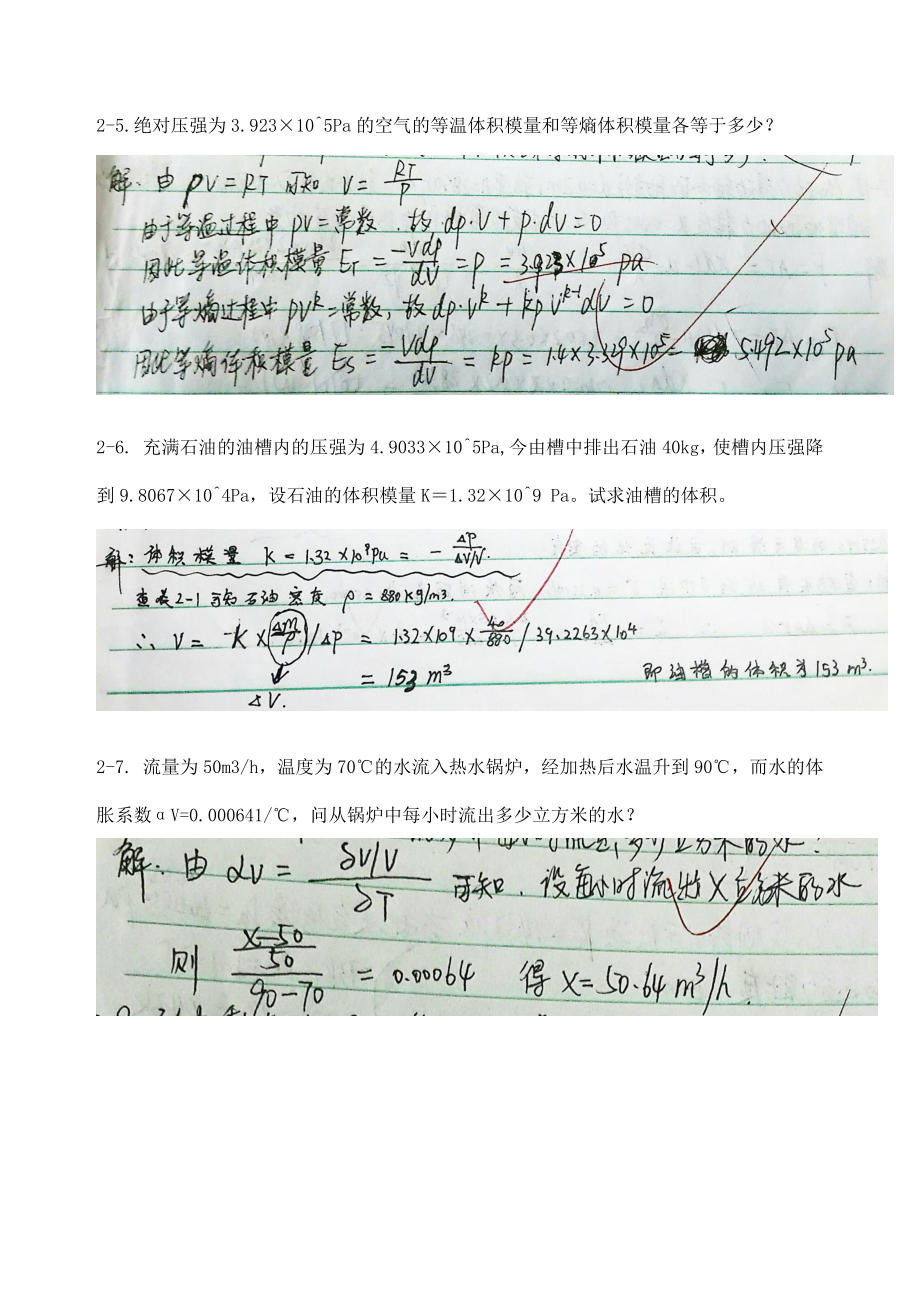 2-5.绝对压强为3.923×10^5Pa的空气的等温体积模量和等熵体积模量各等于多少?
解:由 pV=RT 可知 V=RT/p
由于等温过程中 pV=常数.故 dp·V+p·dV=0
因此等温体积模量 ET=-Vdp/dV=p=3.923×10^5 pa
由于等熵过程中 pV^k=常数,故 dp·V^k+kpV^(k-1)dV=0
因此等熵体积模量 Es=-Vdp/dV=kp=1.4×3.329×10^5= 5.492×10^5 pa
2-6. 充满石油的油槽内的压强为4.9033×10^5Pa,今由槽中排出石油40kg,使槽内压强降
到9.8067×10^4Pa, 设石油的体积模量K=1.32×10^9 Pa。试求油槽的体积。
解:体积模量 K=1.32×10^9Pa=-Δp/(ΔV/V).
查表2-1可知石油密度 ρ=880kg/m3.
∴ V=-K×(Δm/ρ)/Δp=1.32×10^9×40/880/39.2263×10^4
=153 m³ 即油槽的体积为153 m³.
ΔV.
2-7. 流量为50m3/h, 温度为70℃的水流入热水锅炉, 经加热后水温升到90℃, 而水的体
胀系数αV=0.000641/℃, 问从锅炉中每小时流出多少立方米的水?
解:由 αV=(δV/V)/δT 可知.设每小时流出X立方米的水
则 ((x-50)/50)/(90-70)=0.00064 得 X=50.64 m³/h